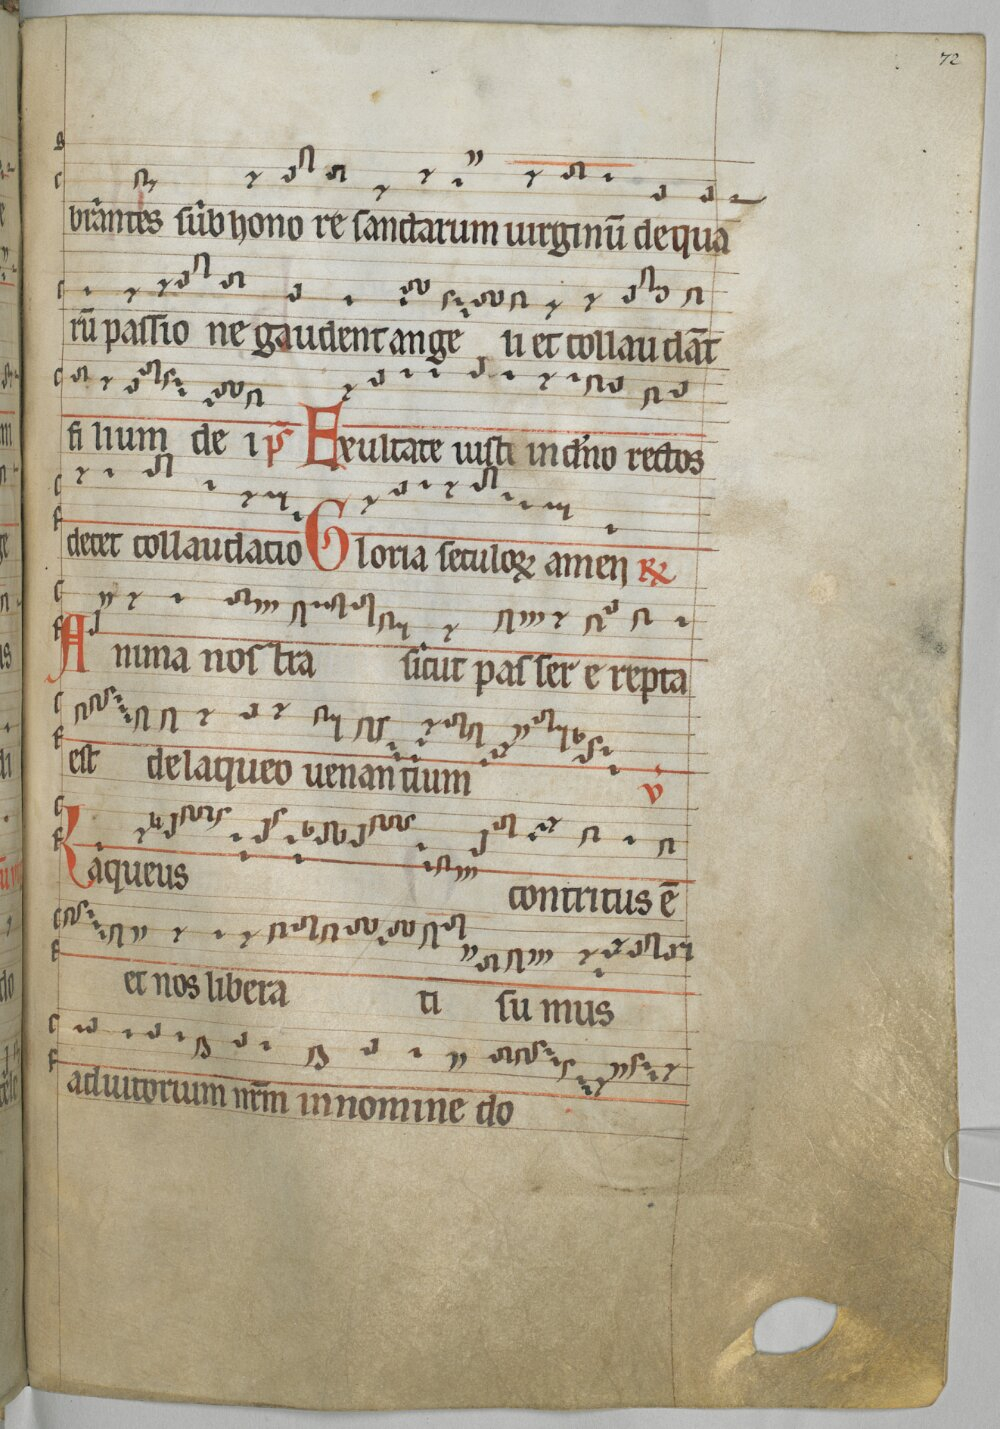 72
brantes sub hono re sanctarum uirginū de qua
rū passio ne gaudent ange li et collau dāt
fi lium de i ps Exultate iusti in dn̄o rectos
decet collaudatio Gloria seculoꝝ amen ℟
A nima nos tra sicut pas ser e repta
est de laqueo uenan tium v̇
Laqueus contritus ē
et nos libera ti su mus
adiutorium nrm̄ in nomine do